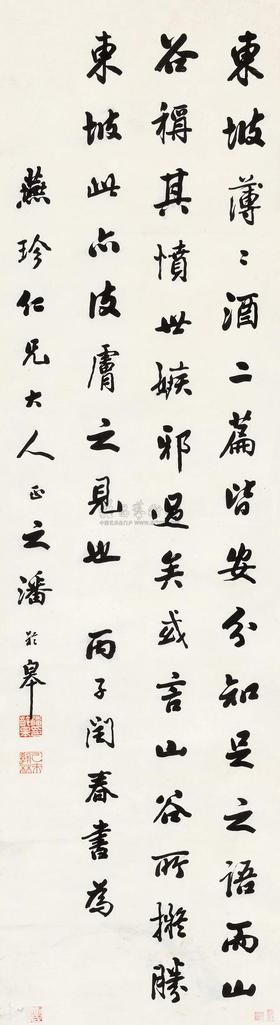 東坡薄々酒二篇皆安分知足之語而山
谷稱其憤世嫉邪過矣或言山谷所擬勝
東坡此亦皮膚之見也 丙子閏春書為
燕珍仁兄大人正之 潘齡皋